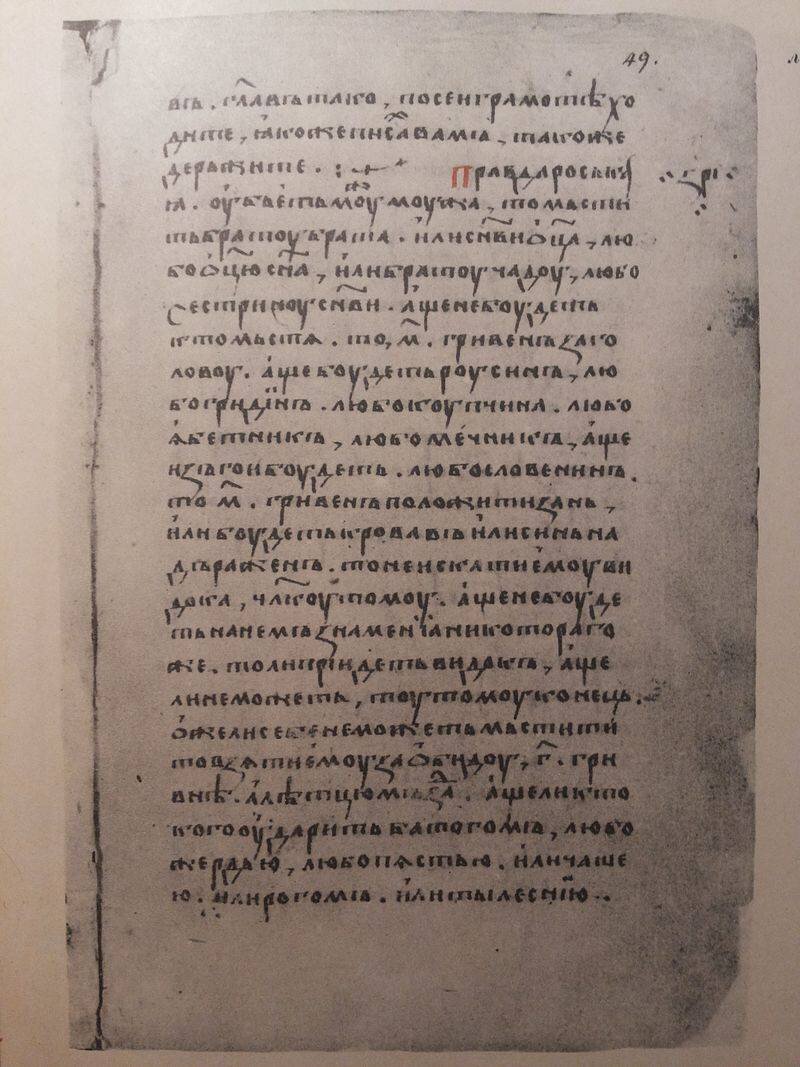 49.
въ. гл҃въ тако, по сеи грамотѣ хо
дите, ꙗкожеписа вамъ, такоже
держите. правда роськаꙗ
ꙗ. оубьеть моу моужа, то мьсти
ть братоу брата. или сн҃ви ѡц҃а, лю
бо ѡц҃ю сн҃а, или братоу чадоу, любо
сестриноу сн҃ви. аще не боудеть
кто мьстѧ. то, м҃. гривенъ за го
ловоу. аще боудеть роусинъ, лю
бо гридинъ. любо коупчина. любо
ꙗбетникъ, любо мечникъ, аще
изъгои боудеть. любо словенинъ.
то м҃. гривенъ положити за нь,
или боудеть кровавъ или синь на
дъраженъ. то не искати ѥмоу ви
дока, чл҃коу томоу. аще не боуде
ть на немъ знамениꙗ никотораго
же. то ли приидеть видокъ, аще
ли не можеть, тоу томоу конець.
оже ли себе не можеть мьстити
то взѧти ѥмоу за ѡбидоу, г҃. грі
внѣ. а лѣтцю мъзда. аще ли кто
кого оударить батогомъ, любо
жердью, любо пѧстью. или чаше
ю. или рогомъ. или тылеснию.